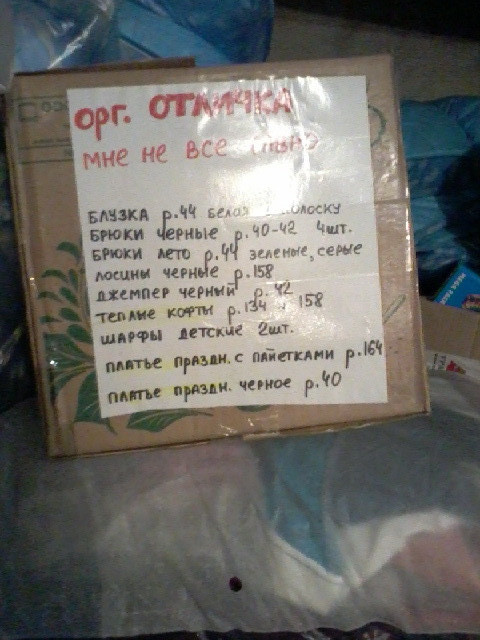 орг. ОТЛИЧКА
мне не все
БЛУЗКА р.44 белая полоску
БРЮКИ ЧЕРНЫЕ р.40-42 4шт.
БРЮКИ ЛЕТО р.44 зеленые, серые
лосины черные р.158
ДЖЕМПЕР ЧЕРНЫЙ р.42
ТЕПЛЫЕ КОФТЫ р.134 158
ШАРФЫ ДЕТСКИЕ 2шт.
ПЛАТЬЕ ПРАЗДН. С ПАЙЕТКАМИ р.164
ПЛАТЬЕ ПРАЗДН. ЧЕРНОЕ р.40